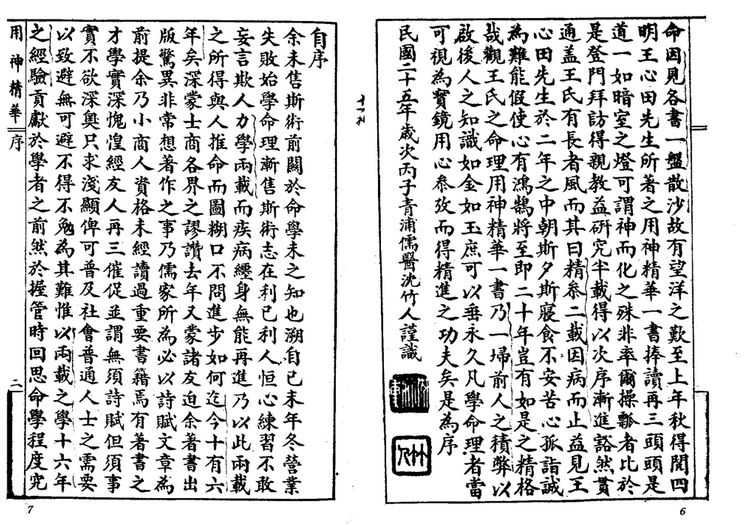 命因見各書一盤散沙故有望洋之歎至上年秋得閱四
明王心田先生所著之用神精華一書捧讀再三頭頭是
道一如暗室之燈可謂神而化之殊非率爾操瓢者比於
是登門拜訪得親教益研究半載得以次序漸進豁然貫
通蓋王氏有長者風而其曰精參二載因病而止益見王
心田先生於二年之中朝斯夕斯寢食不安苦心孤詣誠
為難能假使心有鴻鵠將至即二十年豈有如是之精格
哉觀王氏之命理用神精華一書乃一埽前人之積弊以
啟後人之知識如金如玉庶可以垂永久凡學命理者當
可視為寶鏡用心參攷而得精進之功夫矣是為序
民國二十五年歲次丙子青浦儒醫沈竹人謹識
竹人
6
自序
余未售斯術前關於命學未之知也溯自己未年冬營業
失敗始學命理漸售斯術志在利己利人恒心練習不敢
妄言欺人力學兩載而疾病纏身無能再進乃以此兩載
之所得與人推命而圖糊口不問進步如何迄今十有六
年矣深蒙士商各界之謬讚去年又蒙諸友迫余著書出
版驚異非常想著作之事乃儒家所為必以詩賦文章為
前提余乃小商人資格未經讀過重要書籍焉有著書之
才學實深愧惶經友人再三催促並謂無須詩賦但須事
實不欲深奧只求淺顯俾可普及社會普通人士之需要
以致避無可避不得不勉為其難惟以兩載之學十六年
之經驗貢獻於學者之前然於握管時回思命學程度究
用神精華 序
二
7